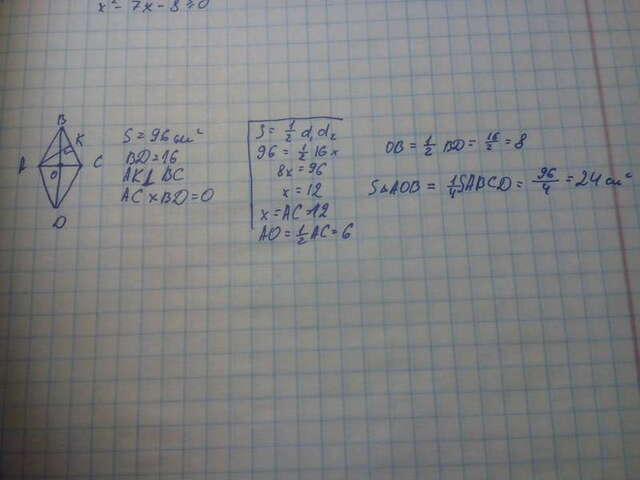 x² - 7x - 8 = 0
B
K
A
C
O
D
S = 96 см²
BD = 16
AK ⊥ BC
AC × BD = O
S = 1/2 d₁ d₂
96 = 1/2 16x
8x = 96
x = 12
x = AC = 12
AO = 1/2 AC = 6
OB = 1/2 BD = 16/2 = 8
S△AOB = 1/4 SABCD = 96/4 = 24 см²